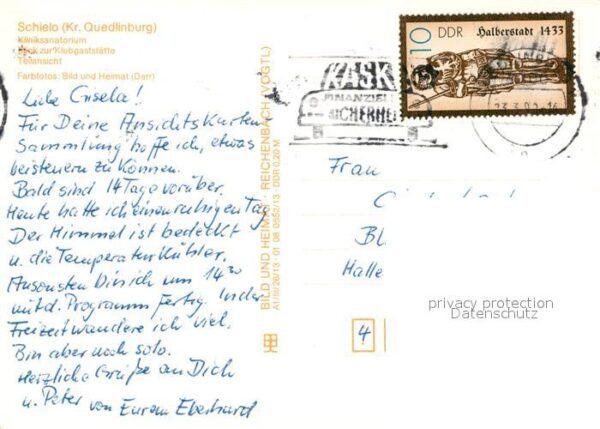 Schielo (Kr. Quedlinburg)
Kliniksanatorium
Blick zur Klubgaststätte
Teilansicht
Farbfotos: Bild und Heimat (Darr)
Liebe Gisela!
Für Deine Ansichtskarten
Sammlung hoffe ich, etwas
beisteuern zu können.
Bald sind 14 Tage vorüber.
Heute hatte ich einen ruhigen Tag
Der Himmel ist bedeckt
u. die Temperatur kühler.
Ansonsten bin ich um 14³⁰
mit d. Programm fertig. In der
Freizeit wandere ich viel.
Bin aber noch solo.
Herzliche Grüße an Dich
u. Peter von Eurem Eberhard
BILD UND HEIMAT REICHENBACH (VOGTL)
A1/IV/26/13 · 01 08 0552/13 · DDR 0,20 M
10 DDR Halberstadt 1433
KASK
FINANZIELL
SICHERHEI
Frau
Bl.
Halle
4
privacy protection
Datenschutz